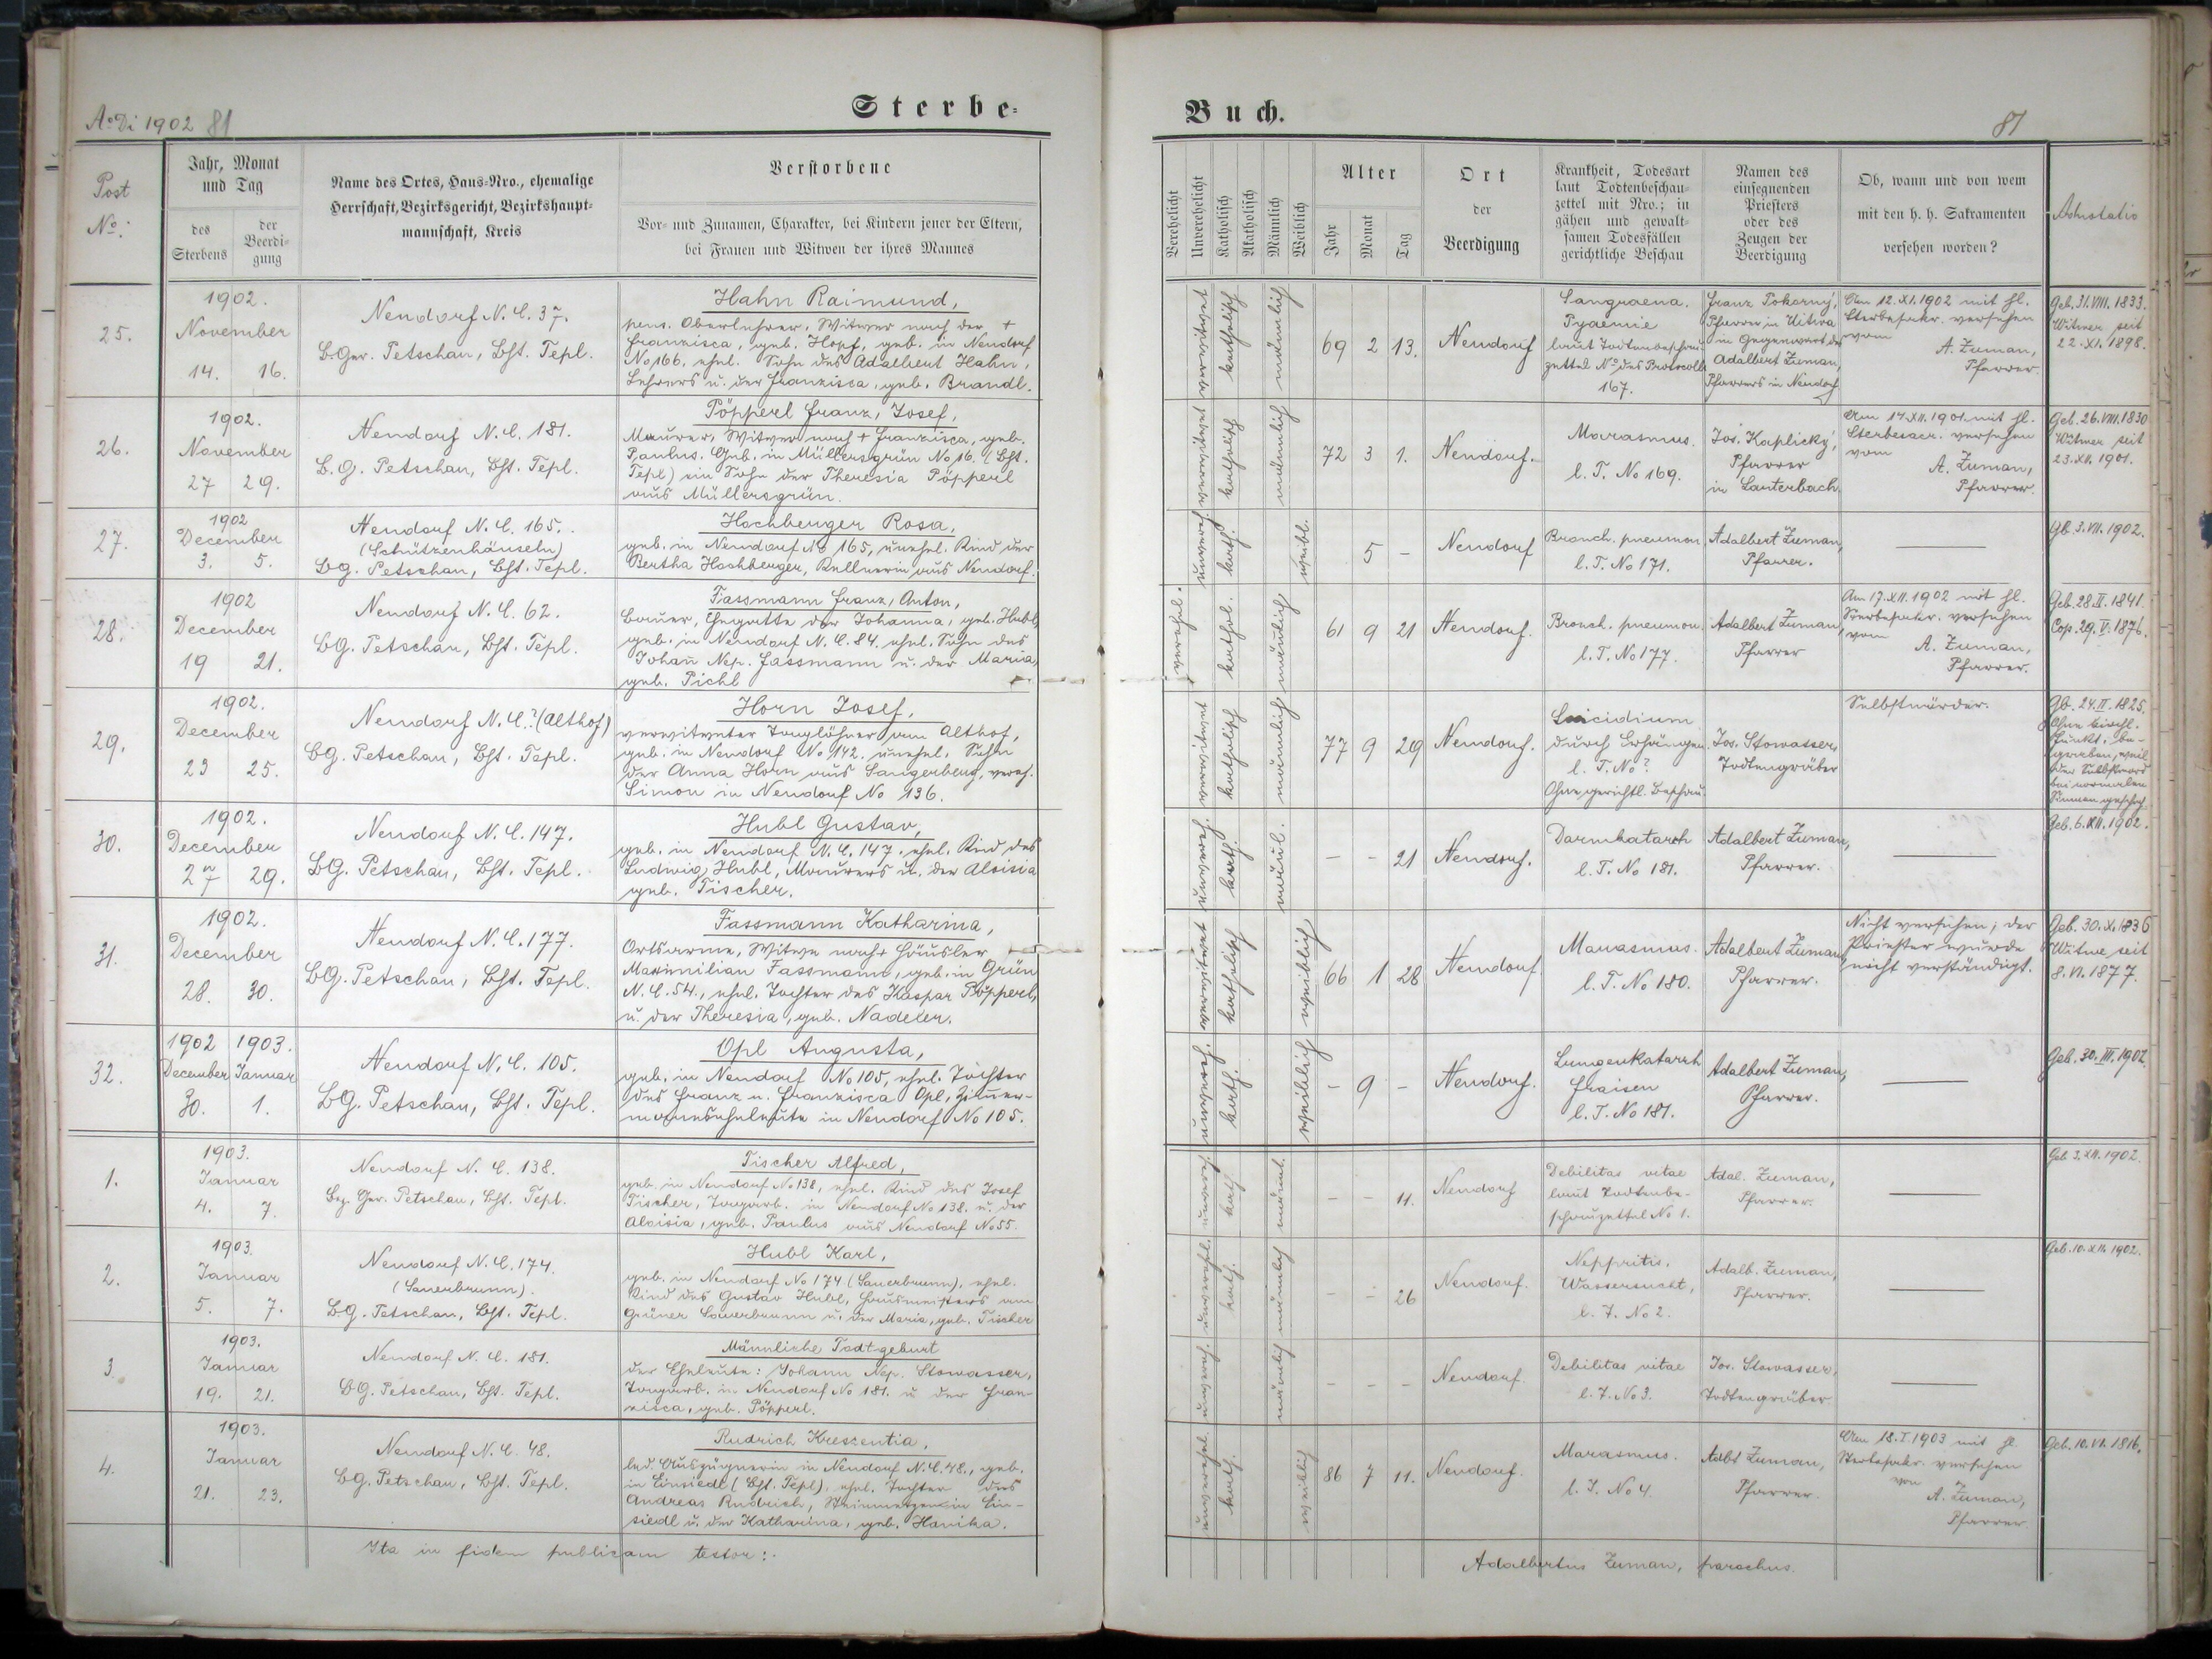 Sterbe-
Ao Di 1902 81
Post
No:
Jahr, Monat
und Tag
des
Sterbens
der
Beerdi-
gung
Name des Ortes, Haus-Nro., ehemalige
Herrschaft, Bezirksgericht, Bezirkshaupt-
mannschaft, Kreis
Verstorbene
Vor- und Zunamen, Charakter, bei Kindern jener der Eltern,
bei Frauen und Witwen der ihres Mannes
25.
1902.
November
14. 16.
Neudorf N.C. 37.
B.Ger. Petschau, Bht. Tepl.
Hahn Raimund,
pens. Oberlehrer, Witwer nach der +
Franzisca, geb. Hopf, geb. in Neudorf
No 166, ehel. Sohn des Adalbert Hahn,
Lehrers u. der Franzisca, geb. Brandl.
26.
1902.
November
27 29.
Neudorf N.C. 181.
B.G. Petschau, Bht. Tepl.
Pöpperl Franz, Josef,
Maurer, Witwer nach + Franzisca, geb.
Paulus. Geb. in Müllersgrün No 16. (Bht.
Tepl) ein Sohn der Theresia Pöpperl
aus Müllersgrün.
27.
1902
December
3. 5.
Neudorf N.C. 165.
(Schützenhäuseln)
BG. Petschau, Bht. Tepl.
Hochberger Rosa,
geb. in Neudorf No 165, unehel. Kind der
Bertha Hochberger, Kellnerin aus Neudorf.
28.
1902
December
19 21.
Neudorf N.C. 62.
BG. Petschau, Bht. Tepl.
Fassmann Franz, Anton,
Bauer, Ehegatte der Johanna, geb. Hubl,
geb. in Neudorf N.C. 84. ehel. Sohn des
Johann Nep. Fassmann u. der Maria,
geb. Pichl
29.
1902.
December
23 25.
Neudorf N.C.? (Althof)
BG. Petschau, Bht. Tepl.
Horn Josef,
verwitweter Taglöhner am Althof,
geb. in Neudorf No 142. unehel. Sohn
der Anna Horn aus Sangerberg, vereh.
Simon in Neudorf No 136.
30.
1902.
December
27 29.
Neudorf N.C. 147.
BG. Petschau, Bht. Tepl.
Hubl Gustav,
geb. in Neudorf N.C. 147. ehel. Kind des
Ludwig Hubl, Maurers u. der Aloisia
geb. Tischer.
31.
1902.
December
28. 30.
Neudorf N.C. 177.
BG. Petschau, Bht. Tepl.
Fassmann Katharina,
Ortsarme, Witwe nach + Häusler
Maximilian Fassmann, geb. in Grün
N.C. 54., ehel. Tochter des Kaspar Pöpperl,
u. der Theresia, geb. Nadeler.
32.
1902 1903.
December Januar
30. 1.
Neudorf N.C. 105.
BG. Petschau, Bht. Tepl.
Opl Augusta,
geb. in Neudorf No 105, ehel. Tochter
des Franz u. Franzisca Opl, Zimmer-
mannseheleute in Neudorf No 105.
1.
1903.
Januar
4. 7.
Neudorf N.C. 138.
Bez. Ger. Petschau, Bht. Tepl.
Tischer Alfred,
geb. in Neudorf No 138, ehel. Kind des Josef
Tischer, Tagarb. in Neudorf No 138. u. der
Aloisia, geb. Paulus aus Neudorf No 55.
2.
1903.
Januar
5. 7.
Neudorf N.C. 174.
(Sauerbrunn).
BG. Petschau, Bht. Tepl.
Hubl Karl,
geb. in Neudorf No 174 (Sauerbrunn), ehel.
Kind des Gustav Hubl, Hausmeisters am
Grüner Sauerbrunn u. der Maria, geb. Tischer
3.
1903.
Januar
19. 21.
Neudorf N.C. 181.
BG. Petschau, Bht. Tepl.
Männliche Todtgeburt
der Eheleute: Johann Nep. Stowasser,
Tagarb. in Neudorf No 181. u der Fran-
zisca, geb. Pöpperl.
4.
1903.
Januar
21. 23.
Neudorf N.C. 48.
BG. Petschau, Bht. Tepl.
Rudrich Kreszentia,
led. Auszüglerin in Neudorf N.C. 48., geb.
in Einsiedl (Bht. Tepl), ehel. Tochter des
Andreas Rudrich, Steinmetzen in Ein-
siedl u. der Katharina, geb. Hanika.
Ita in fidem publicam testor:
Buch.
81
Verehelicht
Unverehelicht
Katholisch
Akatholisch
Männlich
Weiblich
Alter
Jahr
Monat
Tag
Ort
der
Beerdigung
Krankheit, Todesart
laut Todtenbeschau-
zettel mit Nro.; in
gähen und gewalt-
samen Todesfällen
gerichtliche Beschau
Namen des
einsegnenden
Priesters
oder des
Zeugen der
Beerdigung
Ob, wann und von wem
mit den h. h. Sakramenten
versehen worden?
Adnotatio
verwitwet katholisch männlich
69 2 13.
Neudorf
Pyaemie
laut Todtenbeschau-
zettel No des Protocolls
167.
Franz Pokorný,
Pfarrer in Uitwa
in Gegenwart des
Adalbert Zuman,
Pfarrers in Neudorf
Am 12.XI.1902 mit hl.
Sterbesakr. versehen
vom
A. Zuman,
Pfarrer.
Geb. 31.VIII.1833.
Witwer seit
22.XI.1898.
verwitwet katholisch männlich
72 3 1.
Neudorf.
Marasmus.
l. T. No 169.
Jos. Kaplický,
Pfarrer
in Lauterbach.
Am 14.XII.1901 mit hl.
Sterbesacr. versehen
vom
A. Zuman,
Pfarrer.
Geb. 26.VIII.1830
Witwer seit
23.XII.1901.
unvereh. kath. weibl.
5 -
Neudorf
Bronch. pneumon.
l. T. No 171.
Adalbert Zuman,
Pfarrer.
Gb. 3.VII.1902.
verehel. kathol. männlich
61 9 21
Neudorf.
Bronch. pneumon.
l. T. No 177.
Adalbert Zuman,
Pfarrer
Am 17.XII.1902 mit hl.
Sterbesakr. versehen
vom
A. Zuman,
Pfarrer.
Geb. 28.II.1841.
Cop. 29.V.1876.
verwitwet katholisch männlich
77 9 29
Neudorf.
Suicidium
durch Erhängen
l. T. No?
Ohne gerichtl. Beschau.
Jos. Stowasser,
Todtengräber
Selbstmörder.
Gb. 24.II.1825.
Ohne kirchl.
Funkt. be-
graben, weil
der Selbstmord
bei normalen
Sinnen geschah.
unvereh. kath. männl.
- - 21
Neudorf.
Darmkatarrh
l. T. No 181.
Adalbert Zuman,
Pfarrer.
Geb. 6.XII.1902.
verwitwet katholisch weiblich
66 1 28
Neudorf.
Marasmus.
l. T. No 180.
Adalbert Zuman,
Pfarrer.
Nicht versehen; der
Priester wurde
nicht verständigt.
Geb. 30.X.1836
Witwe seit
8.VI.1877.
unvereh. kath. weiblich
- 9 -
Neudorf.
Lungenkatarrh
Fraisen
l. T. No 181.
Adalbert Zuman,
Pfarrer.
Geb. 30.III.1902.
unvereh. kath. männl.
- - 11.
Neudorf
Debilitas vitae
laut Todtenbe-
schauzettel No 1.
Adal. Zuman,
Pfarrer.
Geb. 3.XII.1902.
unverehl. kath. männlich
- - 26
Neudorf.
Neppritis,
Wassersucht,
l. T. No 2.
Adalb. Zuman,
Pfarrer.
Geb. 10.XII.1902.
unvereh. männlich
- - -
Neudorf.
Debilitas vitae
l. T. No 3.
Jos. Stowasser,
Todtengräber
unverehel. kath. weiblich
86 7 11.
Neudorf.
Marasmus.
l. T. No 4.
Adbt Zuman,
Pfarrer.
Am 18.I.1903 mit hl.
Sterbesakr. versehen
von
A. Zuman,
Pfarrer
Geb. 10.VI.1816.
Adalbertus Zuman, parochus.